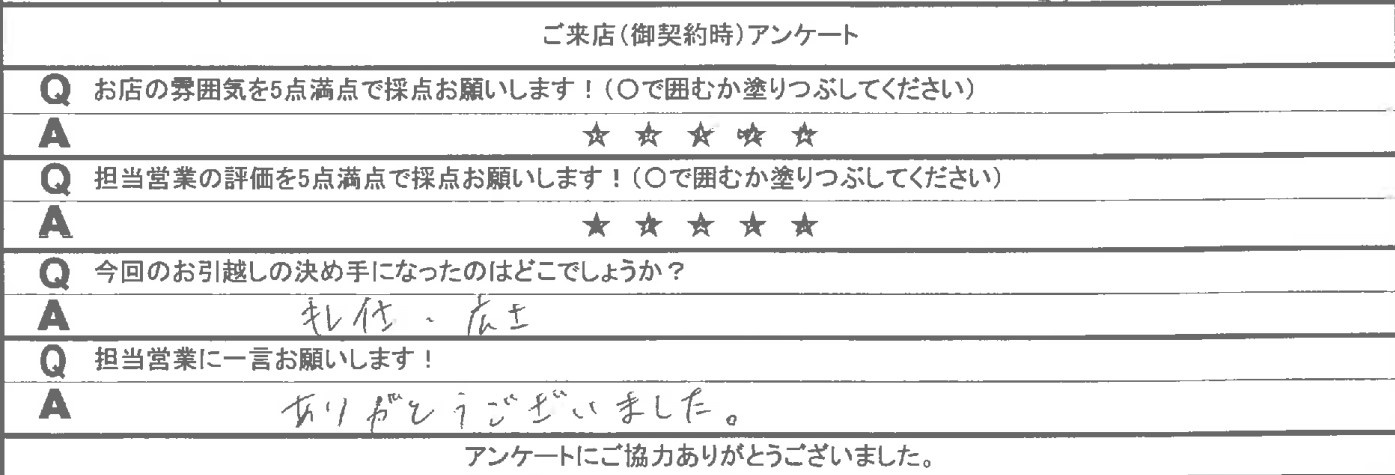 ご来店（御契約時）アンケート
Q お店の雰囲気を5点満点で採点お願いします！（〇で囲むか塗りつぶしてください）
A ★ ★ ★ ★ ★
Q 担当営業の評価を5点満点で採点お願いします！（〇で囲むか塗りつぶしてください）
A ★ ★ ★ ★ ★
Q 今回のお引越しの決め手になったのはどこでしょうか？
A キレイさ、広さ
Q 担当営業に一言お願いします！
A ありがとうございました。
アンケートにご協力ありがとうございました。